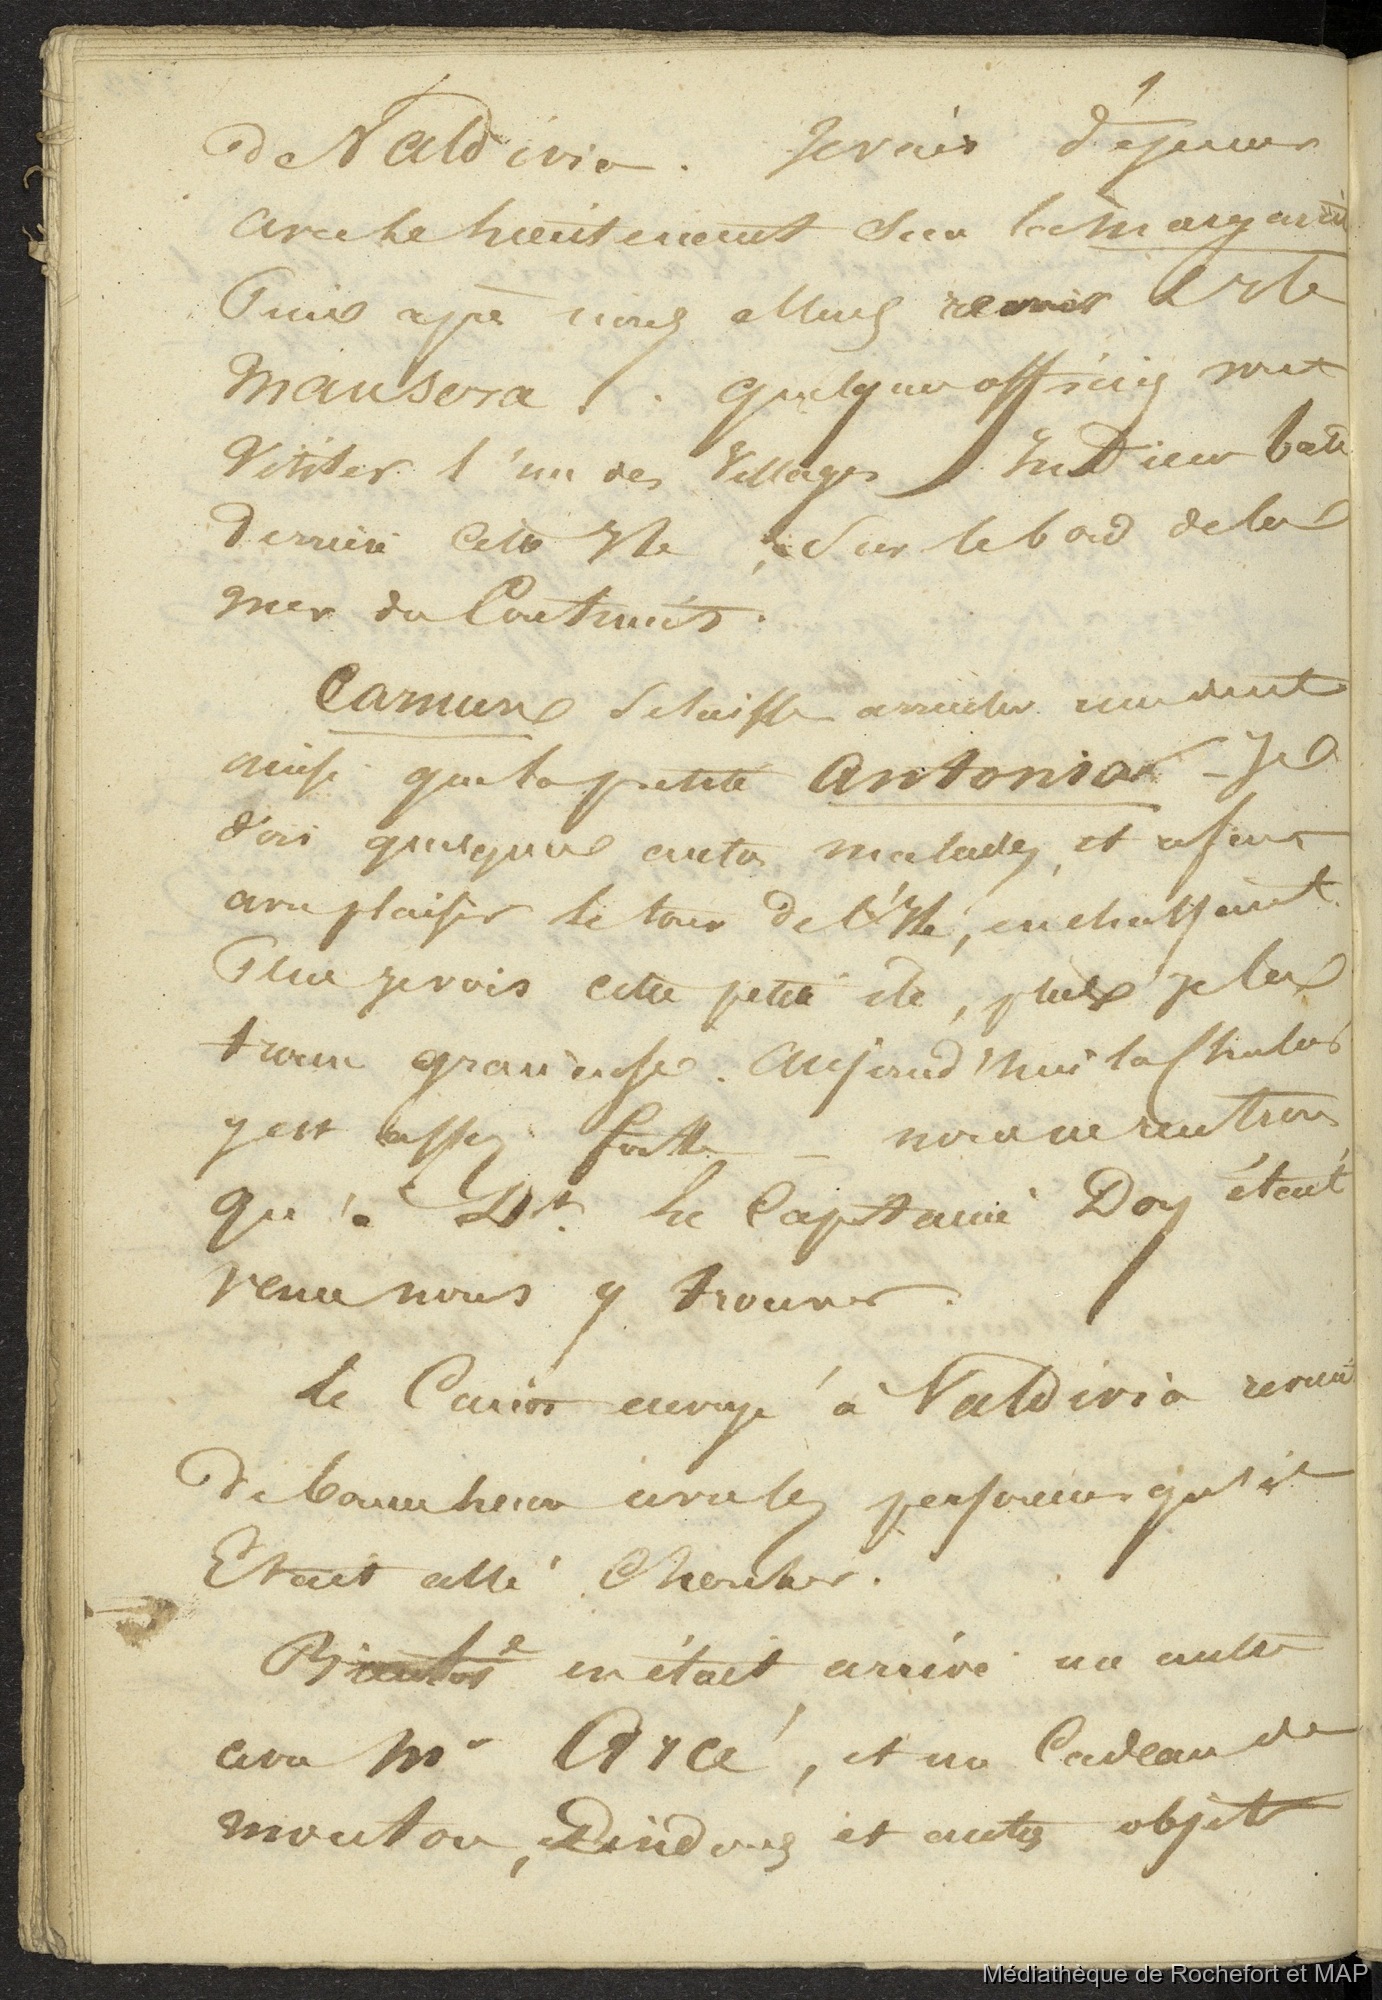 de Valdivia. Je vais déjeuner
avec le lieutenant sur la Margarita
Puis après nous allons revoir l'Isle
Mansera. quelques officiers vont
visiter l'un des Villages Indiens bati
derrière cette Isle, sur le bord de la
mer du Continent.
Carmen se laisse arracher une dent
ainsi que la petite Antonia - Je
vois quelques autres malades, et refais
avec plaisir le tour de l'Isle, en chassant.
Plus je vois cette petite ile, plus je la
trouve gracieuse. Aujourd'hui la chaleur
y est assez forte - nous ne rentrons
qu'à le Capitaine Doy étant
venu nous y trouver.
Le Canot envoyé à Valdivia revient
de bonne heure avec les personnes qu'il
Etait allé chercher.
en était arrivé un autre
avec Mr Arcé, et un Cadeau de
mouton, Dindons et autres objets
Médiathèque de Rochefort et MAP